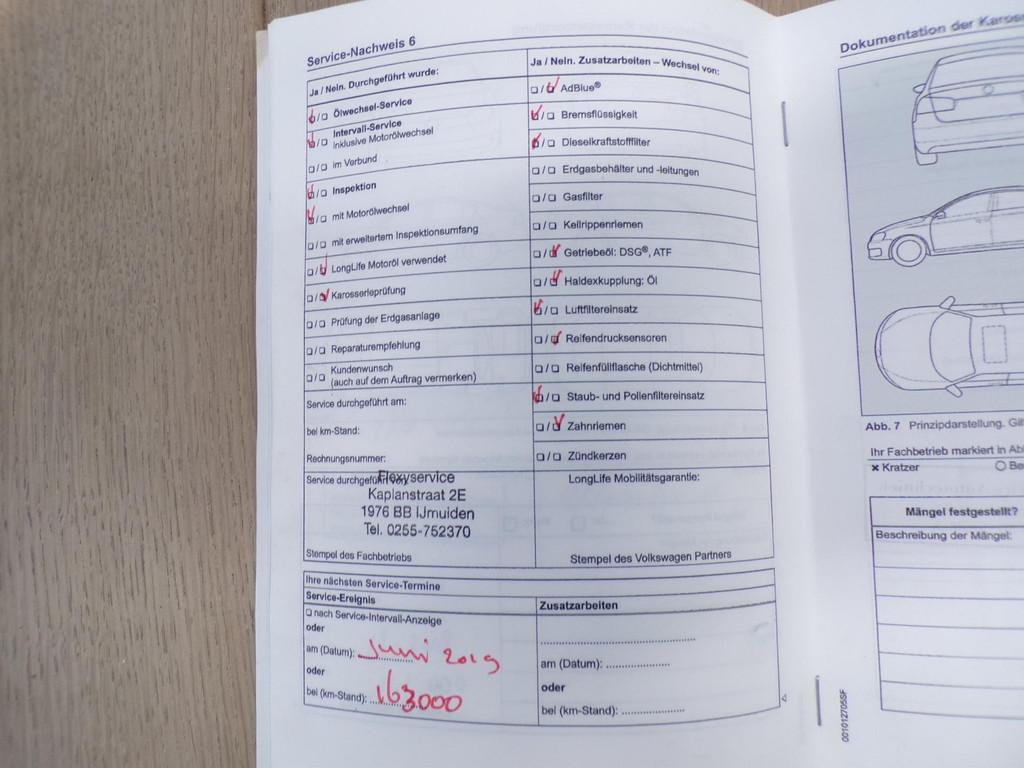 Service-Nachweis 6
Ja / Nein. Durchgeführt wurde:
Ölwechsel-Service
Intervall-Service
inklusive Motorölwechsel
im Verbund
Inspektion
mit Motorölwechsel
mit erweitertem Inspektionsumfang
LongLife Motoröl verwendet
Karosserieprüfung
Prüfung der Erdgasanlage
Reparaturempfehlung
Kundenwunsch
(auch auf dem Auftrag vermerken)
Service durchgeführt am:
bei km-Stand:
Rechnungsnummer:
Service durchgeführt von:
Flexyservice
Kaplanstraat 2E
1976 BB IJmuiden
Tel. 0255-752370
Stempel des Fachbetriebs
Ja / Nein. Zusatzarbeiten – Wechsel von:
AdBlue®
Bremsflüssigkeit
Dieselkraftstofffilter
Erdgasbehälter und -leitungen
Gasfilter
Keilrippenriemen
Getriebeöl: DSG®, ATF
Haldexkupplung: Öl
Luftfiltereinsatz
Reifendrucksensoren
Reifenfüllflasche (Dichtmittel)
Staub- und Pollenfiltereinsatz
Zahnriemen
Zündkerzen
LongLife Mobilitätsgarantie:
Stempel des Volkswagen Partners
Ihre nächsten Service-Termine
Service-Ereignis
nach Service-Intervall-Anzeige
oder
am (Datum): Juni 2019
oder
bei (km-Stand): 163.000
Zusatzarbeiten
am (Datum):
oder
bei (km-Stand):
Dokumentation der Karos
Abb. 7 Prinzipdarstellung.
Ihr Fachbetrieb markiert in
× Kratzer
Mängel festgestellt?
Beschreibung der Mängel:
001012705SF